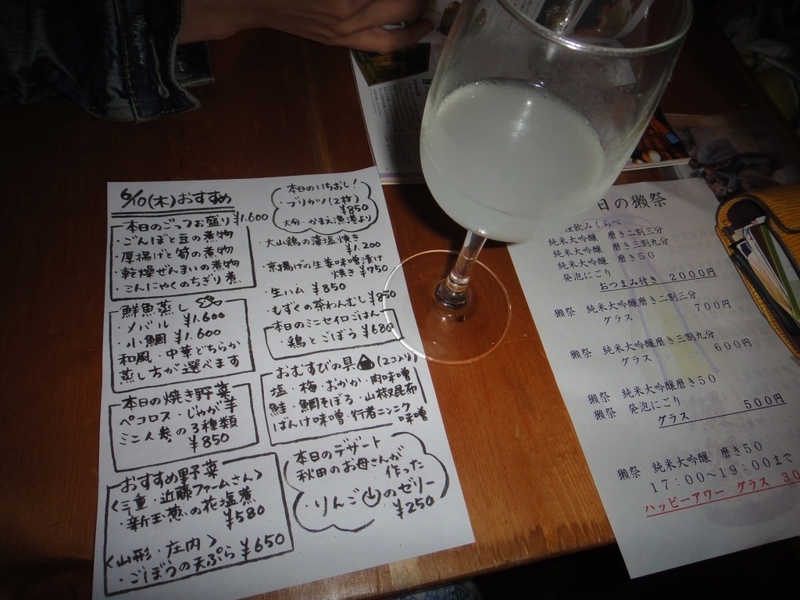 6/10(木)おすすめ
本日のごっつお盛り ¥1.600
・ごんぼと豆の煮物
・厚揚げと筍の煮物
・乾燥ぜんまいの煮物
・こんにゃくのちぎり煮
鮮魚蒸し
・メバル ¥1.600
・小鯛 ¥1.600
和風・中華どちらか
蒸し方が選べます
本日の焼き野菜
ペコロス・じゃが芋
ミニ人参の3種類
¥850
おすすめ野菜
〈三重・近藤ファームさん〉
・新玉葱の花塩煮
¥580
〈山形・庄内〉
・ごぼうの天ぷら ¥650
本日のいちおし!
・ブリカマ(2枚)
¥850
大分・かまえ漁港より
・大山鶏の藻塩焼き
¥1.200
・京揚げの生姜味噌漬け
焼き ¥750
・生ハム ¥850
・もずくの茶わんむし ¥850
本日のミニセイロごはん
・鶏とごぼう ¥680
おむすびの具 (2コ入り)
塩・梅・おかか・肉味噌
鮭・鯛そぼろ・山椒昆布
ばんけ味噌・行者ニンニク
味噌
本日のデザート
秋田のお母さんが
作った
・りんごのゼリー
¥250
日の獺祭
飲みくらべ
純米大吟醸 磨き二割三分
純米大吟醸 磨き三割九分
純米大吟醸 磨き50
発泡にごり
おつまみ付き 2000円
獺祭 純米大吟醸磨き二割三分
グラス 700円
獺祭 純米大吟醸磨き三割九分
グラス 600円
獺祭 純米大吟醸磨き50
獺祭 発泡にごり
グラス 500円
獺祭 純米大吟醸 磨き50
17:00~19:00まで
ハッピーアワー グラス 30